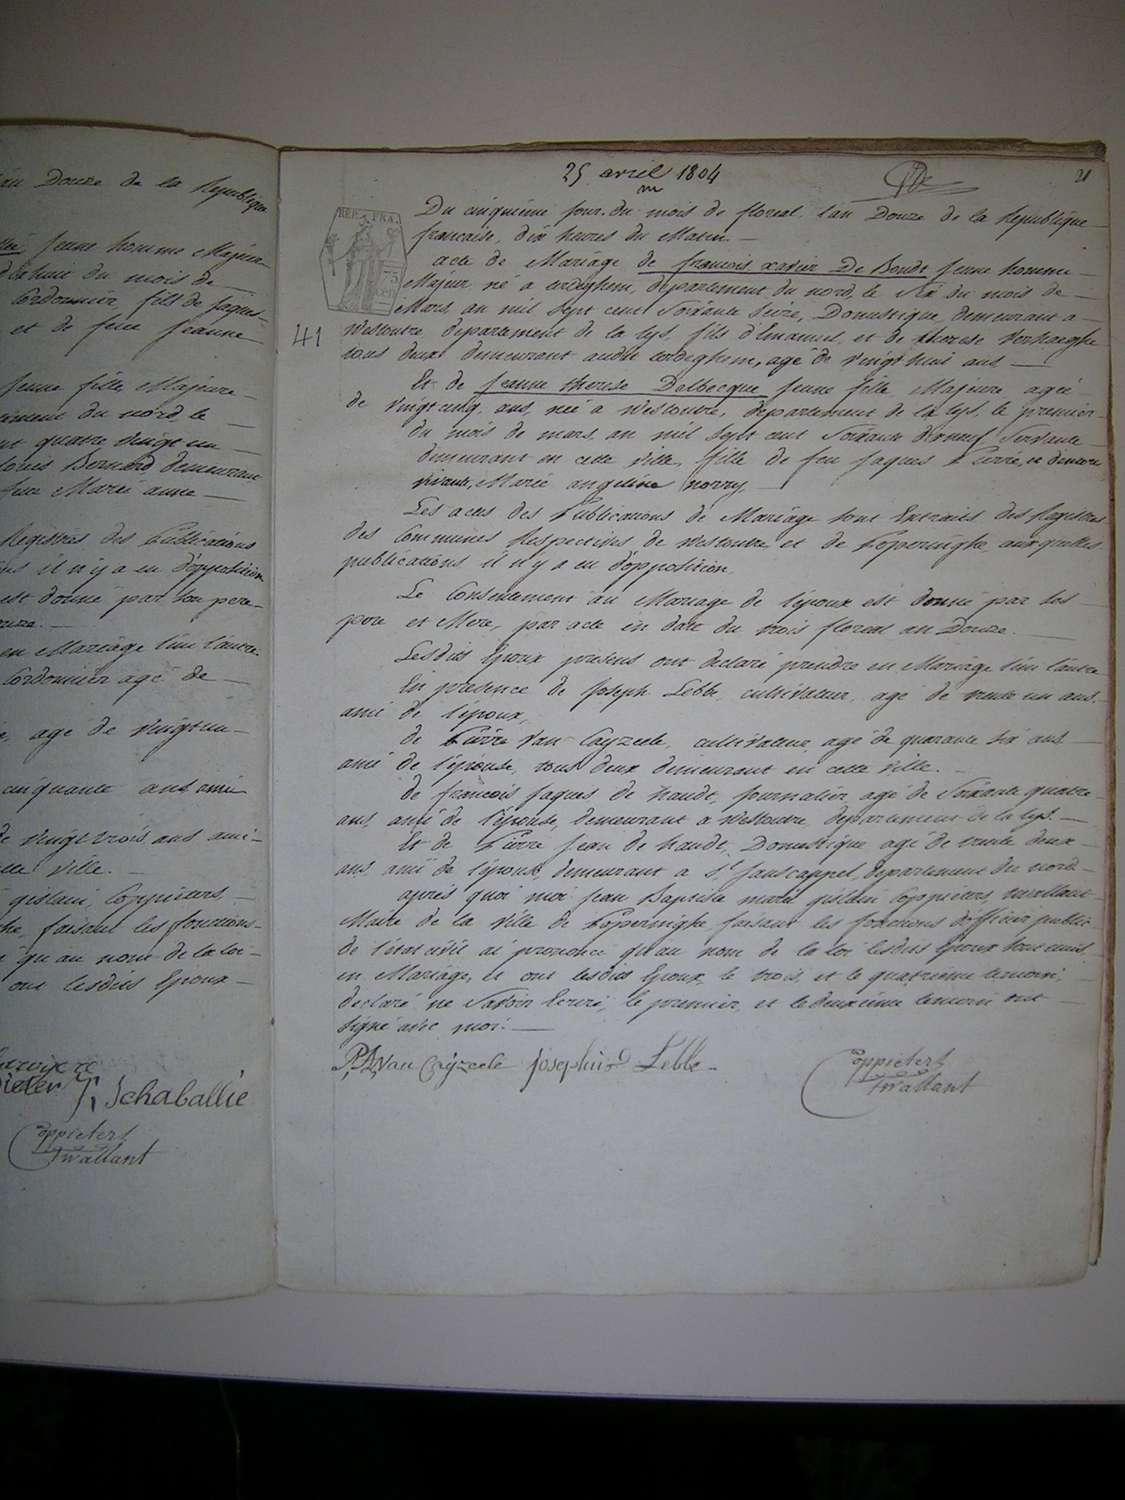 an Douze de la République
jeune homme Majeur
huit du mois de
Cordonnier fils de Jaques
et de feue Jeanne
jeune fille Majeure
du nord, le
quatre vingt un
Louis Bernard demeurant
feue Marie anne
Registres des Publications
il n'y a eu d'opposition
est donné par son pere
en Mariage l'un l'autre
Cordonnier agé de
agé de vingt un
cinquante ans ami
de vingt trois ans ami
ville.
gislain Coppieters
faisant les fonctions
qu'au nom de la loi
ont lesdits Epoux
Schaballie
Coppieters
Twallant
25 avril 1804
m
21
REP. FRA.
75
Du cinquieme jour du mois de floreal l'an Douze de la République
francaise, dix heures du Matin.
acte de Mariage de francois xavier De Bonde jeune homme
Majeur, né à oudeghem, departement du nord, le six du mois de
Mars, an mil sept cent soixante seize, Domestique, demeurant a
41
Westoutre, departement de la Lys, fils d'Emanuel, et de therese Verhaeghe
tous deux demeurant audit oudeghem, agé de vingt huit ans
Et de jeanne therese Delbecque jeune fille Majeure agée
de vingt cinq ans, née a Westoutre, departement de la Lys, le premier
du mois de mars, an mil sept cent soixante dixneuf Servante
demeurant en cette ville, fille de feu Jaques Pierre, et d'encore
vivante, Marie angeline Norry.
Les actes des Publications de Mariage sont Extraits des Registres
des Communes Respectives de Westoutre et de Poperinghe, auxquelles
publications il n'y a eu d'opposition.
Le Consentement au Mariage de l'époux est donné par ses
pere et Mere, par acte en date du trois floreal an Douze.
Lesdits Epoux presens ont declaré prendre en Mariage l'un l'autre
En presence de Joseph Lebbe, cultivateur, agé de trente un ans,
ami de l'époux,
de Pierre Van Cayzeele, cultivateur, agé de quarante six ans
ami de l'épouse, tous deux demeurant en cette ville.
de francois Jaques de haudt, journalier, agé de Soixante quatre
ans, ami de l'épouse, demeurant a Westoutre, departement de la Lys.
Et de Pierre Jean de haudt, Domestique agé de trente deux
ans, ami de l'épouse, demeurant a St Janscappel, departement du nord
après quoi moi Jean Baptiste marie gislain Coppieters twallant
Maire de la ville de Poperinghe faisant les fonctions d'officier public
de l'etat civil ai prononcé qu'au nom de la loi lesdits Epoux sont unis
en Mariage, et ont lesdits Epoux, le trois, et le quatrieme temoin,
declaré ne savoir Ecrire, le premier, et le deuxieme temoin ont
signé avec moi.
P. J. van Cayzeele Josephus Lebbe
Coppieters
Twallant